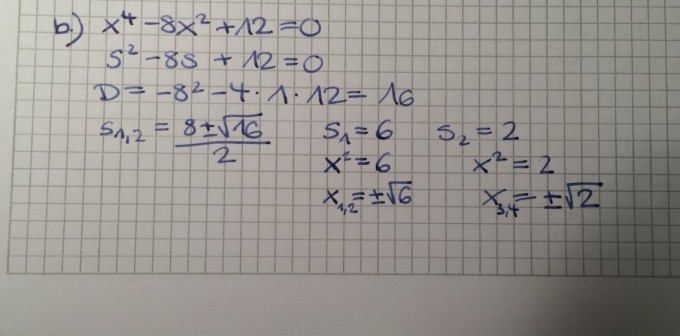 b.) x⁴ -8x² +12 =0
s² -8s + 12 =0
D= -8² -4·1·12= 16
s₁,₂ = 8±√16/2 s₁=6 s₂=2
x²=6 x²=2
x₁,₂=±√6 x₃,₄=±√2